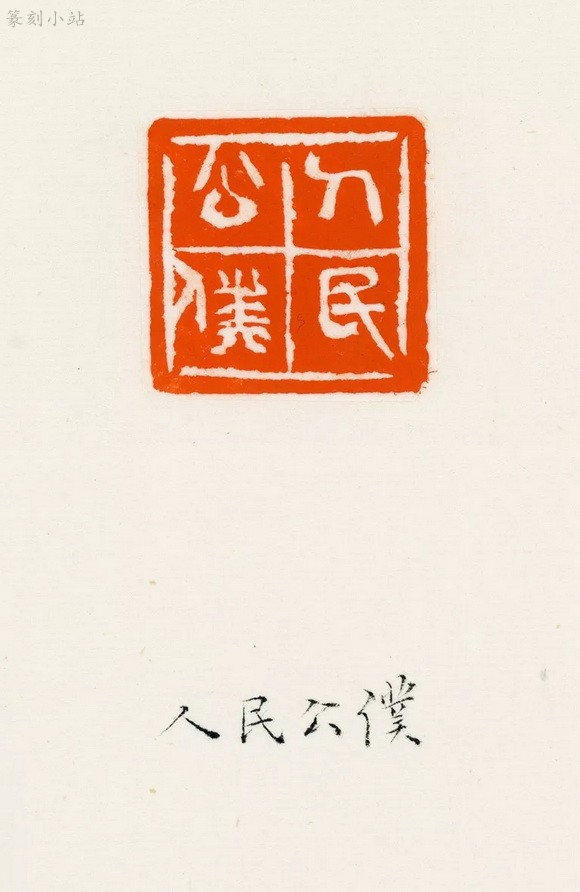 篆刻小站
人民
公僕
人民公僕